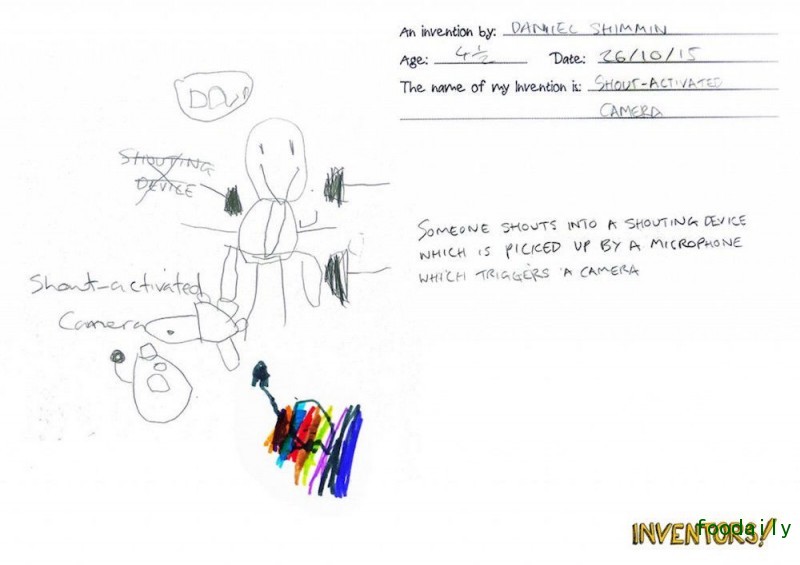 An invention by: DANIEL SHIMMIN
Age: 4 ½ Date: 26/10/15
The name of my Invention is: SHOUT-ACTIVATED
CAMERA
DAN
SHOUTING
DEVICE
SOMEONE SHOUTS INTO A SHOUTING DEVICE
WHICH IS PICKED UP BY A MICROPHONE
WHICH TRIGGERS A CAMERA
Shout-activated
Camera
INVENTORS!
foodaily